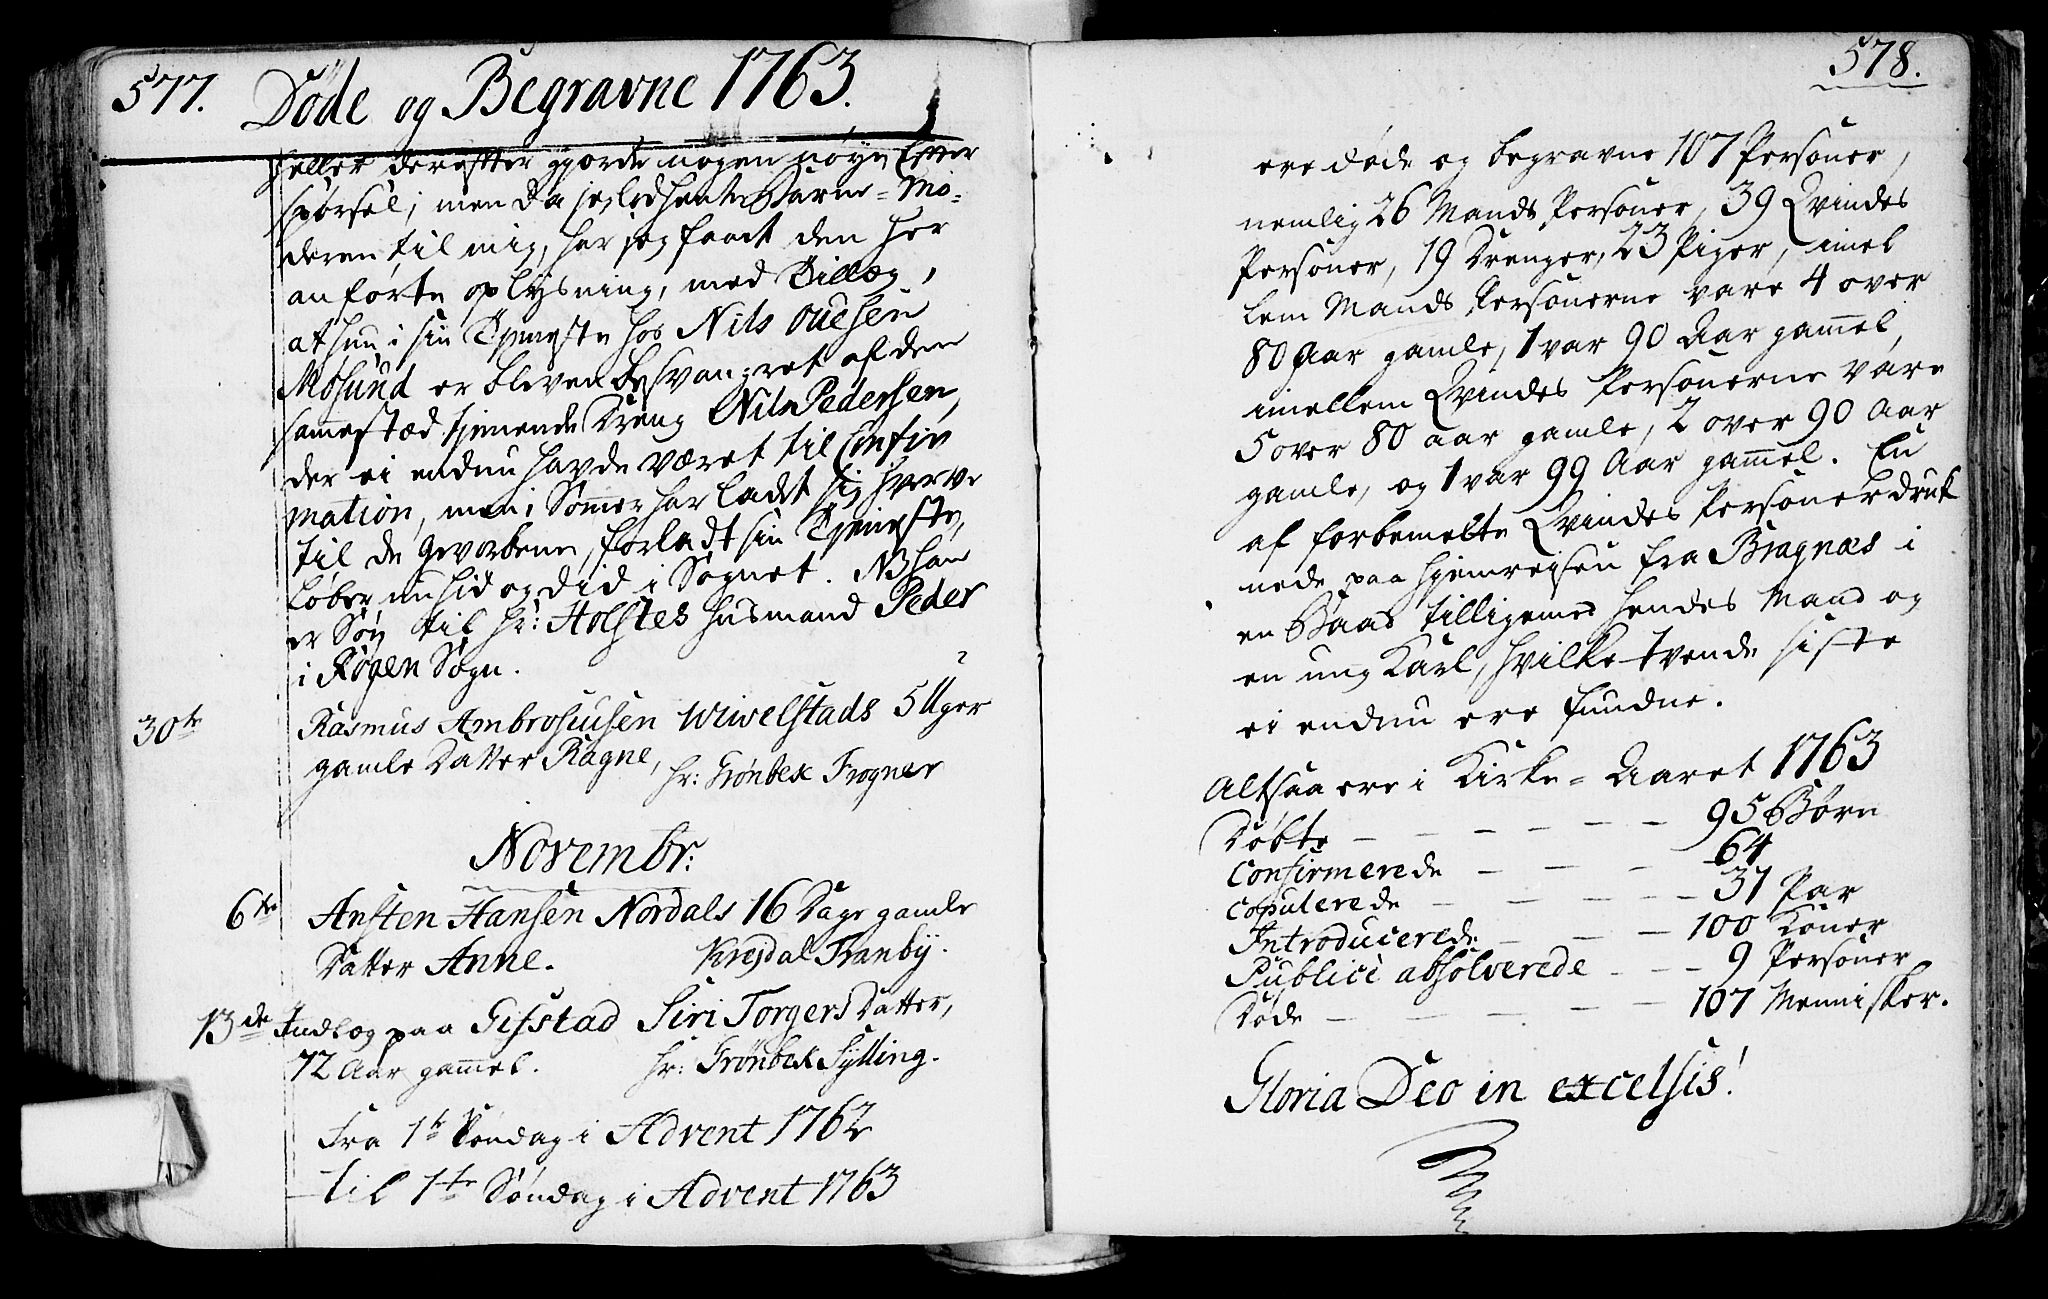 577. Døde og Begravne 1763.
heller derefter gjorde nogen nøye Efter
spørsel; men da jeg lod hente Barne-Mo-
deren til mig, har jeg faaet den her
anførte oplysning, med Tillæg,
at hun i sin Tjeneste hos Nils Ouesen
Mosund er bleven besvangret af den
sammestæd tjenende Dreng Nils Pedersen,
der ei endnu havde været til Confir
mation, men i Sommer har ladet sig hverve
til de Gevorbene, forladt sin Tjeneste,
løber nu hid og did i Sognet. NB han
er Søn til Hr: Holstes Husmand Peder
i Røgen Sogn.
30te Rasmus Ambrosiusen Wiwelstads 5 Uger
gamle Datter Ragne, Hr: Grønbek Frogner
Novembr:
6te Ansten Hansen Nordals 16 Dage gamle
Datter Anne. Krejdal Tranby.
13de Indlæg paa Gifstad Siri Torgers Datter,
72 Aar gammel. Hr: Grønbek Sylling.
Fra 1te Søndag i Advent 1762
til 1te Søndag i Advent 1763
578.
ere døde og begravne 107 Personer,
nemlig 26 Mands Personer, 39 Qvindes
Personer, 19 Drenger, 23 Piger, imel
lem Mands Personerne vare 4 over
80 Aar gamle, 1 var 90 Aar gammel,
imellem Qvindes Personerne vare
5 over 80 aar gamle, 2 over 90 Aar
gamle, og 1 var 99 Aar gammel. En
af forbemelte Qvindes Personer druk
nede paa Hjemreisen fra Bragnæs i
en Baad tilligemed hendes Mand og
en ung Karl, hvilke tvende siste
ei endnu ere fundne.
Altsaa ere i Kirke-Aaret 1763
Døbte - - - - - - 95 Børn
Confirmerede - - - - 64
Copulerede - - - - - 31 Par
Introducerede - - - 100 Koner
Publicè absolverede - - - 9 Personer
Døde - - - - - - 107 Mennisker.
Gloria Deo in excelsis!